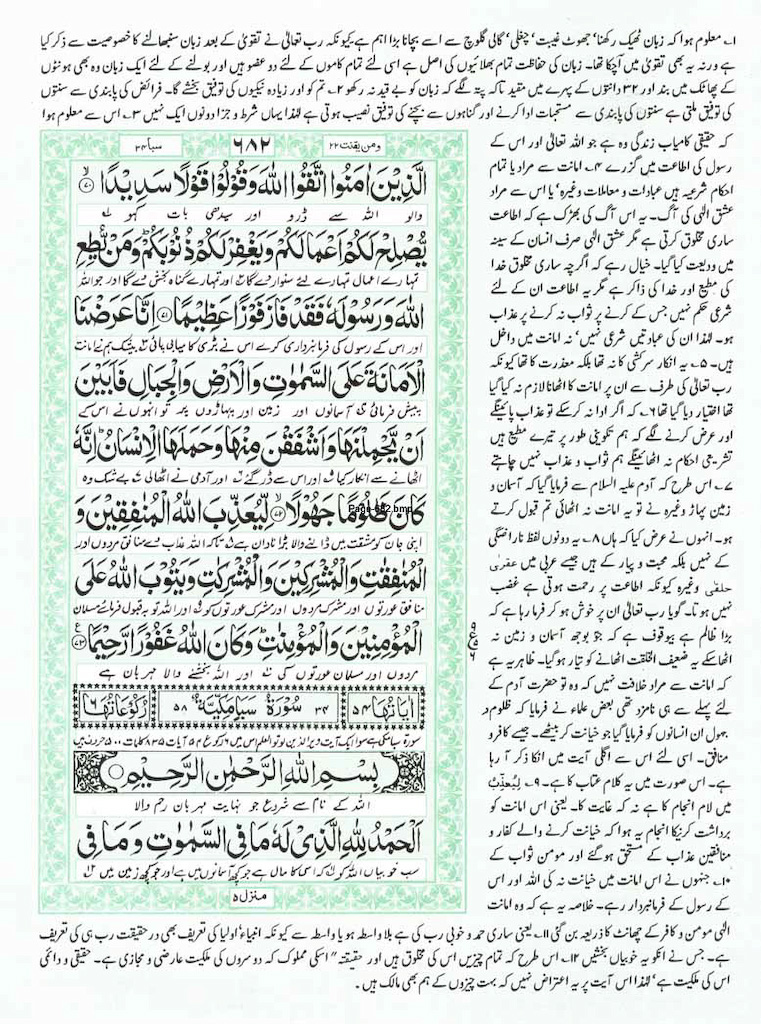 ۱؎ معلوم ہوا کہ زبان ٹھیک رکھنا، جھوٹ غیبت، چغلی، گالی گلوچ سے اسے بچانا بڑا اہم ہے کیونکہ رب تعالیٰ نے تقویٰ کے بعد زبان سنبھالنے کا خصوصیت سے ذکر کیا
ہے ورنہ یہ بھی تقویٰ میں آچکا تھا۔ زبان کی حفاظت تمام بھلائیوں کی اصل ہے اسی لئے تمام کاموں کے لئے دو عضو ہیں اور بولنے کے لئے ایک زبان وہ بھی ہونٹوں
کے پھاٹک میں بند اور ۳۲ دانتوں کے پہرے میں مقید تاکہ پتہ لگے کہ زبان کو بے قید نہ رکھو ۲؎ تم کو اور زیادہ نیکیوں کی توفیق بخشے گا۔ فرائض کی پابندی سے سنتوں
کی توفیق ملتی ہے سنتوں کی پابندی سے مستحبات ادا کرنے اور گناہوں سے بچنے کی توفیق نصیب ہوتی ہے لہٰذا یہاں شرط و جزا دونوں ایک نہیں ۳؎ اس سے معلوم ہوا
کہ حقیقی کامیاب زندگی وہ ہے جو اللہ تعالیٰ اور اس کے
رسول کی اطاعت میں گزرے ۴؎ امانت سے مراد یا تمام
احکام شرعیہ ہیں عبادات و معاملات وغیرہ، یا اس سے مراد
عشق الٰہی کی آگ۔ یہ اس آگ کی بھڑک ہے کہ اطاعت
ساری مخلوق کرتی ہے مگر عشق الٰہی صرف انسان کے سینہ
میں ودیعت کیا گیا۔ خیال رہے کہ اگرچہ ساری مخلوق خدا
کی مطیع اور خدا کی ذاکر ہے مگر یہ اطاعت ان کے لئے
شرعی حکم نہیں جس کے کرنے پر ثواب نہ کرنے پر عذاب
ہو۔ لہٰذا ان کی عبادتیں شرعی نہیں، نہ امانت میں داخل
ہیں۔ ۵؎ یہ انکار سرکشی کا نہ تھا بلکہ معذرت کا تھا کیونکہ
رب تعالیٰ کی طرف سے ان پر امانت کا اٹھانا لازم نہ کیا گیا
تھا اختیار دیا گیا تھا ۶؎ کہ اگر ادا نہ کرسکے تو عذاب پائینگے
اور عرض کرنے لگے کہ ہم تکوینی طور پر تیرے مطیع ہیں
تشریعی احکام نہ اٹھائینگے ہم ثواب و عذاب نہیں چاہتے
۷؎ اس طرح کہ آدم علیہ السلام سے فرمایا گیا کہ آسمان و
زمین پہاڑ وغیرہ نے تو یہ امانت نہ اٹھائی تم قبول کرتے
ہو۔ انہوں نے عرض کیا کہ ہاں ۸؎ یہ دونوں لفظ ناراضگی
کے نہیں بلکہ محبت و پیار کے ہیں جیسے عربی میں عقریٰ
حلقیٰ وغیرہ کیونکہ اطاعت پر رحمت ہوتی ہے غضب
نہیں ہوتا۔ گویا رب تعالیٰ ان پر خوش ہو کر فرما رہا ہے کہ
بڑا ظالم ہے بیوقوف ہے کہ جو بوجھ آسمان و زمین نہ
اٹھاسکے یہ ضعیف الخلقت اٹھانے کو تیار ہوگیا۔ ظاہر یہ ہے
کہ امانت سے مراد خلافت نہیں کہ وہ تو حضرت آدم کے
لئے پہلے سے ہی نامزد تھی بعض علماء نے فرمایا کہ ظلوم و
جہول ان انسانوں کو فرمایا گیا جو خیانت کر بیٹھے۔ جیسے کافر و
منافق۔ اسی لئے اس سے اگلی آیت میں انکا ذکر آ رہا
ہے۔ اس صورت میں یہ کلام عتاب کا ہے۔ ۹؎ لِیُعَذِّبَ
میں لام انجام کا ہے نہ کہ غایت کا۔ یعنی اس امانت کو
برداشت کرنیکا انجام یہ ہوا کہ خیانت کرنے والے کفار و
منافقین عذاب کے مستحق ہوگئے اور مومن ثواب کے
۱۰؎ جنہوں نے اس امانت میں خیانت نہ کی اللہ اور اس
کے رسول کے فرمانبردار رہے۔ خلاصہ یہ ہے کہ وہ امانت
ومن یقنت ۲۲
۶۸۲
سبا ۳۴
الَّذِیْنَ اٰمَنُوا اتَّقُوا اللّٰهَ وَقُوْلُوْا قَوْلًا سَدِیْدًا ۙ﴿۷۰﴾
والو اللہ سے ڈرو اور سیدھی بات کہو ۱؎
یُّصْلِحْ لَكُمْ اَعْمَالَكُمْ وَیَغْفِرْ لَكُمْ ذُنُوْبَكُمْ ؕ وَمَنْ یُّطِعِ
تمہارے اعمال تمہارے لئے سنوار دے گا ۲؎ اور تمہارے گناہ بخش دے گا اور جو اللہ
اللّٰهَ وَرَسُوْلَهٗ فَقَدْ فَازَ فَوْزًا عَظِیْمًا ﴿۷۱﴾ اِنَّا عَرَضْنَا
اور اس کے رسول کی فرمانبرداری کرے اس نے بڑی کامیابی پائی ۳؎ بیشک ہم نے امانت
الْاَمَانَةَ عَلَی السَّمٰوٰتِ وَالْاَرْضِ وَالْجِبَالِ فَاَبَیْنَ
پیش فرمائی ۴؎ آسمانوں اور زمین اور پہاڑوں پر تو انہوں نے اس کے
اَنْ یَّحْمِلْنَهَا وَاَشْفَقْنَ مِنْهَا وَحَمَلَهَا الْاِنْسَانُ ؕ اِنَّهٗ
اٹھانے سے انکار کیا ۵؎ اور اس سے ڈر گئے ۶؎ اور آدمی نے اٹھالی ۷؎ بے شک وہ
كَانَ ظَلُوْمًا جَهُوْلًا ۙ﴿۷۲﴾ لِّیُعَذِّبَ اللّٰهُ الْمُنٰفِقِیْنَ وَ
Page-682.bmp
اپنی جان کو مشقت میں ڈالنے والا بڑا نادان ہے ۸؎ تاکہ اللہ عذاب دے منافق مردوں اور
الْمُنٰفِقٰتِ وَالْمُشْرِكِیْنَ وَالْمُشْرِكٰتِ وَیَتُوْبَ اللّٰهُ عَلَی
منافق عورتوں اور مشرک مردوں اور مشرک عورتوں کو ۹؎ اور اللہ توبہ قبول فرمائے مسلمان
الْمُؤْمِنِیْنَ وَالْمُؤْمِنٰتِ ؕ وَكَانَ اللّٰهُ غَفُوْرًا رَّحِیْمًا ﴿۷۳﴾
مردوں اور مسلمان عورتوں کی ۱۰؎ اور اللہ بخشنے والا مہربان ہے
ع ۹ ۵ ۶
اٰیَاتُهَا ۵۴
۳۴ سُوْرَةُ سَبَاٍ مَّكِّیَّةٌ ۵۸
رُكُوْعَاتُهَا ۶
بِسْمِ اللّٰهِ الرَّحْمٰنِ الرَّحِیْمِ
اللہ کے نام سے شروع جو نہایت مہربان رحم والا
اَلْحَمْدُ لِلّٰهِ الَّذِیْ لَهٗ مَا فِی السَّمٰوٰتِ وَمَا فِی
سب خوبیاں اللہ کو ۱۱؎ کہ اسی کا مال ہے جو کچھ آسمانوں میں ہے اور جو کچھ زمین میں ۱۲؎
منزل ۵
الٰہی مومن و کافر کے چھانٹ کا ذریعہ بن گئی ۱۱؎ یعنی ساری حمد و خوبی رب کی ہے بلا واسطہ ہو یا واسطہ سے کیونکہ انبیاء اولیا کی تعریف بھی در حقیقت رب ہی کی تعریف
ہے۔ جس نے انکو یہ خوبیاں بخشیں ۱۲؎ اس طرح کہ تمام چیزیں اس کی مخلوق ہیں اور حقیقتہ" اسکی مملوک کہ دوسروں کی ملکیت عارضی و مجازی ہے۔ حقیقی و دائمی
اس کی ملکیت ہے، لہٰذا اس آیت پر یہ اعتراض نہیں کہ بہت چیزوں کے ہم بھی مالک ہیں۔